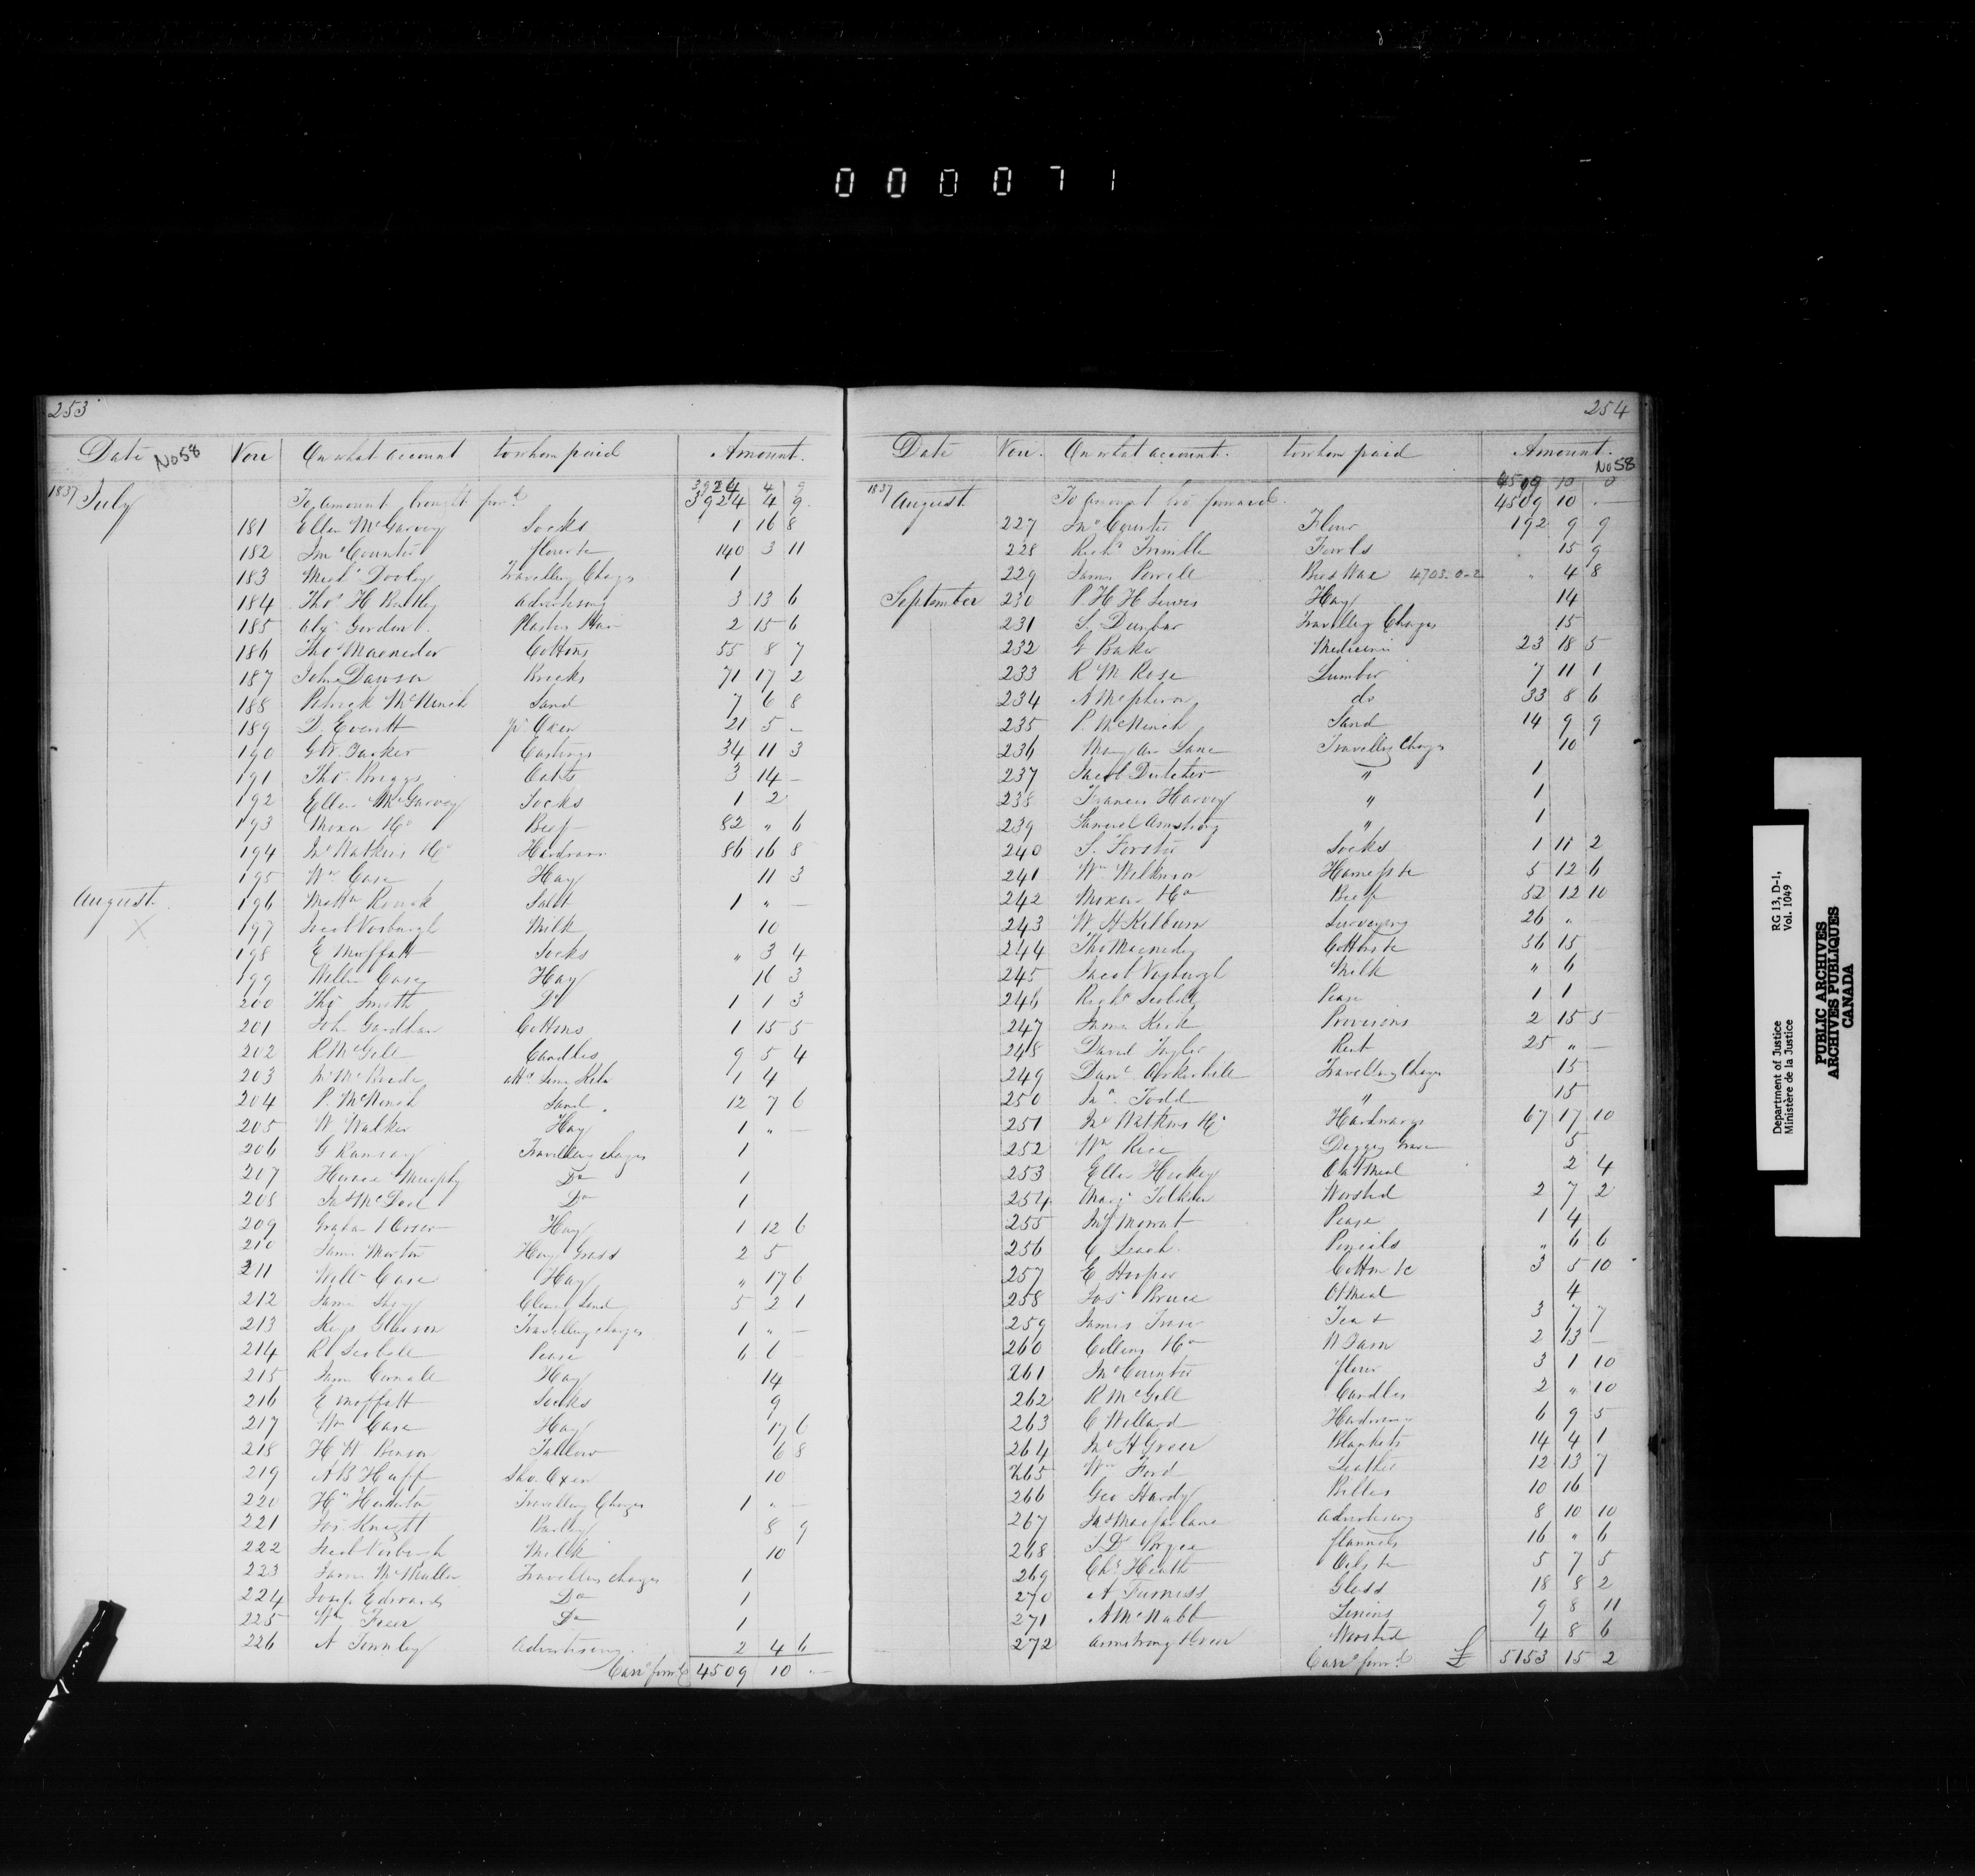 0 0 0 0 7 1
253
Date No 58 Vou On what account to whom paid Amount.
3924 4 9
1837 July To amount brought forwd 3924 4 9
181 Ellen McGarvey Socks 1 16 8
182 Jno Counter flour &c 140 3 11
183 Michl Dooley Travelling Chags 1
184 Thos H Bentley Advertising 3 13 6
185 Alexr Gordon Plaster 2 15 6
186 Thos Macnider Cottons 55 8 7
187 John Dawson Bricks 71 17 2
188 Patrick McNinch Sand 7 6 8
189 D. Everett pr Oxen 21 5 -
190 G W. Yarker Castings 34 11 3
191 Thos Briggs Oats 3 14 -
192 Ellen McGarvey Socks 1 2
193 Moxon & Co Beef 82 " 6
194 Jno Watkins & Co Hardware 86 16 8
195 Wm Case Hay 11 3
August 196 Matthw Rourk Salt 1 " -
X 197 Jacob Vosburgh Milk 10
198 E Moffatt Socks " 3 4
199 Willm Casey Hay 16 3
200 Thos Smith Do 1 1 3
201 John Cottons 1 15 5
202 R McGill Candles 9 5 4
203 Lime Kiln 1 4
204 P. McNinch Sand. 12 7 6
205 W Walker Hay 1 " -
206 G Ramsay Travelling charges 1
207 Horace Murphy Do 1
208 Do 1
209 Hay 1 12 6
210 James Morton Hay Grass 2 5
211 Willm Case Hay " 17 6
212 James Land 5 2 1
213 Gleason Travelling charges 1 " -
214 Pease 6 6 -
215 James Hay 14
216 E Moffatt Socks 9
217 Wm Case Hay 17 6
218 H W Benson Tallow 6 8
219 A B Huff Sho. Oxen 10
220 Travelling Chages 1 " -
221 Jos Knight Barley 8 9
222 Jacob Vosburgh Milk 10
223 James McMullen Travelling charges 1
224 Joseph Edwards Do 1
225 Wm Freer Do 1
226 A Townley Advertising. 2 4 6
Carrd forwd 4509 10 -
254
Date Vou. On what account. to whom paid Amount.
No 58
4509 10 0
1837 August To amount bro forward 4509 10 -
227 Jno Counter Flour 192 9 9
228 Richd Trimble Fowls 15 9
229 James Powell Bees Wax 4703-0-2 " 4 8
September 230 P. H H Lewis Hay 14
231 S. Dunbar Travelling Chages 15
232 G Baker Medicine 23 18 5
233 R M Rose Lumber 7 11 1
234 A McPherson do 33 8 6
235 P. McNinch Sand 14 9 9
236 Mary An Lane Travellg Chages 10
237 Jacob Dutcher " 1
238 Francis Harvey " 1
239 Samuel Armstrong " 1
240 S. Forster Socks 1 11 2
241 Wm Wilkinson Harness &c 5 12 6
242 Moxon & Co Beef 52 12 10
243 W H Kilburn Surveying 26 " -
244 Thos Macnider Cottons &c 36 15
245 Jacob Vosburgh Milk " 6
246 Richd Pease 1 1
247 James Kirk Provisions 2 15 5
248 David Taylor Rent 25 " -
249 Danl Askerhill Travelling Chages 15
250 Jno Todd " 15
251 Jno Watkins & Co Hardware 67 17 10
252 Wm Rice Digging Grave 5
253 Ellen Hickey Oat Meal 2 4
254 Worsted 2 7 2
255 Pease 1 4
256 C Leach. Pencils " 6 6
257 E Harper Cotton &c 3 5 10
258 Jos Bruce Ot Meal 4
259 James Fraser Tea + 3 7 7
260 Collins & Co 2 13 -
261 Jno Counter flour 3 1 10
262 R McGill Candles 2 " 10
263 C Willard Hardware 6 9 5
264 Jno H Greer Blankets 14 4 1
265 Wm Ford Leather 12 13 7
266 Geo Hardy 10 16
267 Jas Macfarlane Advertising 8 10 10
268 flannels 16 " 6
269 Chs Heath Oils &c 5 7 5
270 A Furniss Glass 18 8 2
271 A McNabb Linins 9 8 11
272 Armstrong & Greer Worsted 4 8 6
Carrd forwd £ 5153 15 2
Department of Justice RG 13, D-1,
Ministère de la Justice Vol. 1049
PUBLIC ARCHIVES
ARCHIVES PUBLIQUES
CANADA